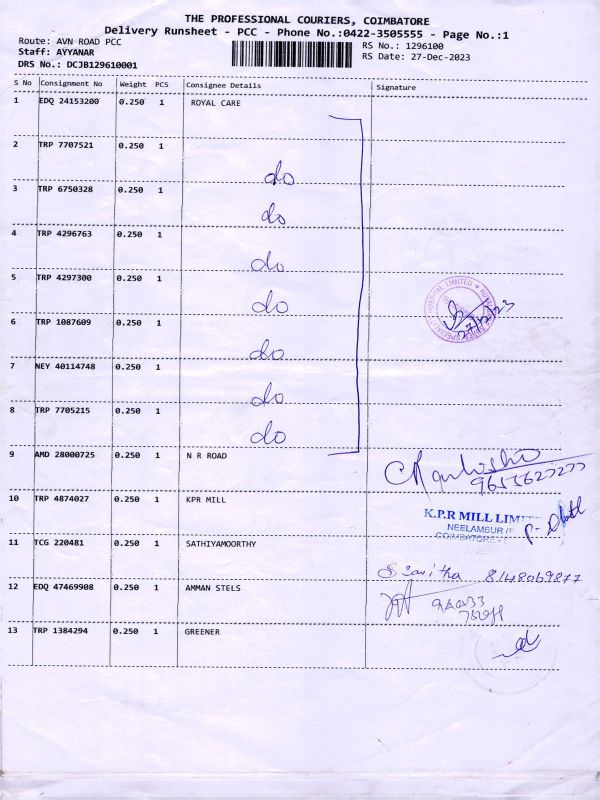 THE PROFESSIONAL COURIERS, COIMBATORE
Delivery Runsheet - PCC - Phone No.:0422-3505555 - Page No.:1
Route: AVN ROAD PCC
RS No.: 1296100
Staff: AYYANAR
RS Date: 27-Dec-2023
DRS No.: DCJB129610001
S No Consignment No Weight PCS Consignee Details Signature
1 EDQ 24153200 0.250 1 ROYAL CARE
2 TRP 7707521 0.250 1
do
3 TRP 6750328 0.250 1
do
4 TRP 4296763 0.250 1
do
5 TRP 4297300 0.250 1
do
27/12/23
6 TRP 1087609 0.250 1
do
7 NEY 40114748 0.250 1
do
8 TRP 7705215 0.250 1
do
9 AMD 28000725 0.250 1 N R ROAD
10 TRP 4874027 0.250 1 KPR MILL
K.P.R MILL
NEELAMBUR
COIMBATORE
11 TCG 220481 0.250 1 SATHIYAMOORTHY
Savitha 8148069877
12 EDQ 47469908 0.250 1 AMMAN STELS
13 TRP 1384294 0.250 1 GREENER